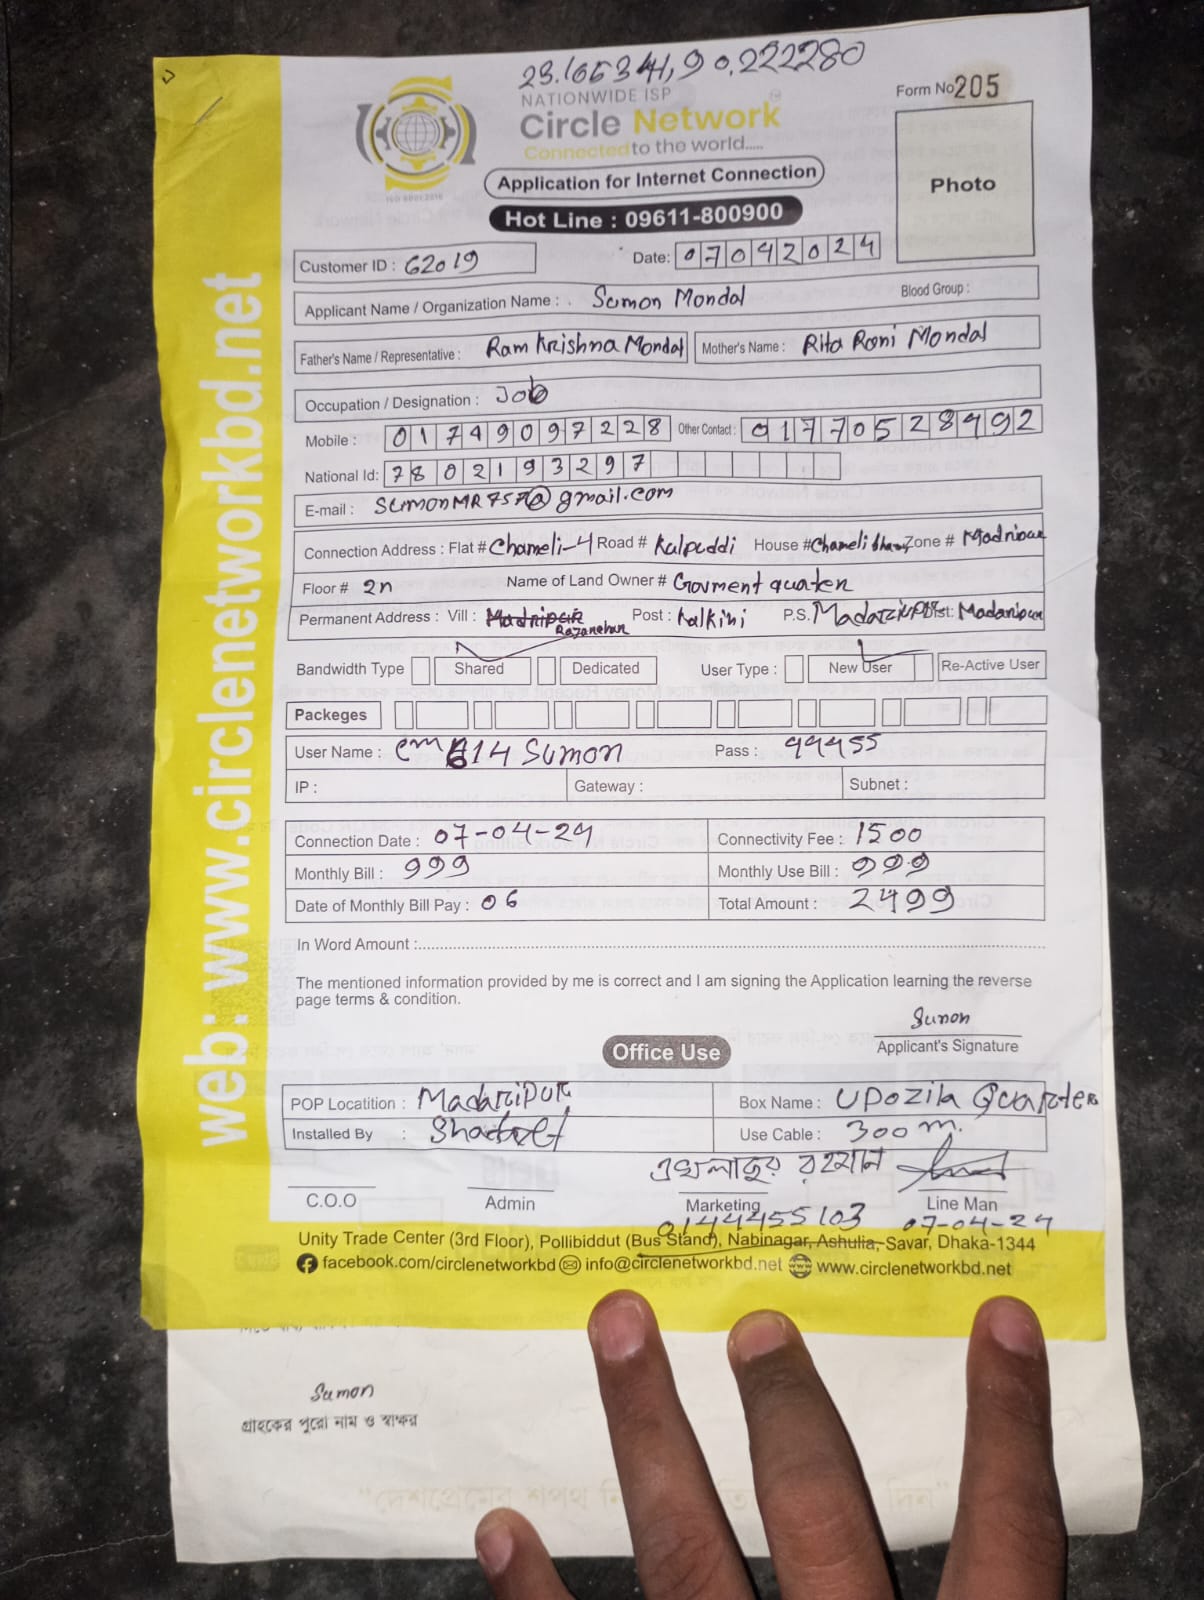 23.165341,90.222280
NATIONWIDE ISP
Circle Network
Connected to the world.....
Form No 205
Photo
ISO 9001:2015
Application for Internet Connection
Hot Line : 09611-800900
Customer ID : 62019
Date: 07042024
Applicant Name / Organization Name : Sumon Mondal Blood Group :
Father's Name / Representative : Ram Krishna Mondal Mother's Name : Rita Rani Mondal
Occupation / Designation : Job
Mobile : 01749097228 Other Contact : 01770528492
National Id: 7802193297
E-mail : SumonMR757@gmail.com
Connection Address : Flat # Chameli-4 Road # Kalpuddi House # Chameli Zone #
Floor # 2n Name of Land Owner # Govment quaten
Permanent Address : Vill : Post : kalkini P.S. Dist:
Bandwidth Type Shared Dedicated User Type : New User Re-Active User
Packeges
User Name : 14 Sumon Pass : 99455
IP : Gateway : Subnet :
Connection Date : 07-04-24 Connectivity Fee : 1500
Monthly Bill : 999 Monthly Use Bill : 999
Date of Monthly Bill Pay : 06 Total Amount : 2499
In Word Amount :
The mentioned information provided by me is correct and I am signing the Application learning the reverse
page terms & condition.
Sumon
Applicant's Signature
Office Use
POP Locatition : Madaripur Box Name : Upozila Quarter
Installed By : Use Cable : 300 m.
এখলাছুর রহমান
C.O.O Admin Marketing Line Man
0144455103 07-04-24
Unity Trade Center (3rd Floor), Pollibiddut (Bus Stand), Nabinagar, Ashulia, Savar, Dhaka-1344
facebook.com/circlenetworkbd info@circlenetworkbd.net www.circlenetworkbd.net
web: www.circlenetworkbd.net
Sumon
গ্রাহকের পুরো নাম ও স্বাক্ষর